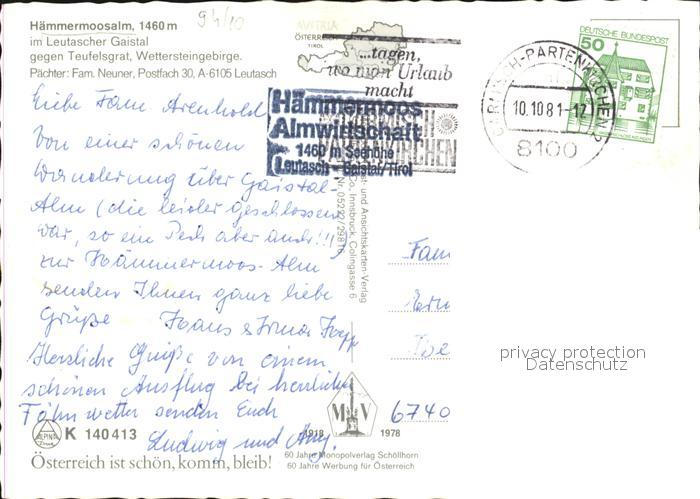 Hämmermoosalm, 1460 m
94/10
im Leutascher Gaistal
gegen Teufelsgrat, Wettersteingebirge.
Pächter: Fam. Neuner, Postfach 30, A-6105 Leutasch
AUSTRIA
ÖSTERREICH
TIROL
...tagen,
wo man Urlaub
macht
GARMISCH-
PARTENKIRCHEN
GARMISCH-PARTENKIRCHEN 2
10.10.81-17
8100
DEUTSCHE BUNDESPOST
50
Hämmermoos
Almwirtschaft
1460 m Seehöhe
Leutasch - Gaistal/Tirol
Liebe Fam Arenhold
Von einer schönen
Wanderung über Gaistal-
Alm (die leider geschlossen
war, so ein Pech aber auch!!)
zur Hämmermoos-Alm
senden Ihnen ganz liebe
Grüße Hans & Irma
Herzliche Grüße von einem
schönen Ausflug bei herrlichem
Föhnwetter senden Euch
Ludwig und
st- und Ansichtskarten-Verlag
Co., Innsbruck, Colingasse 6
Nr. 05222/29816
Fam
6740
privacy protection
Datenschutz
ALPINE
K 140 413
M V
1918 1978
Österreich ist schön, komm, bleib!
60 Jahre Monopolverlag Schöllhorn
60 Jahre Werbung für Österreich